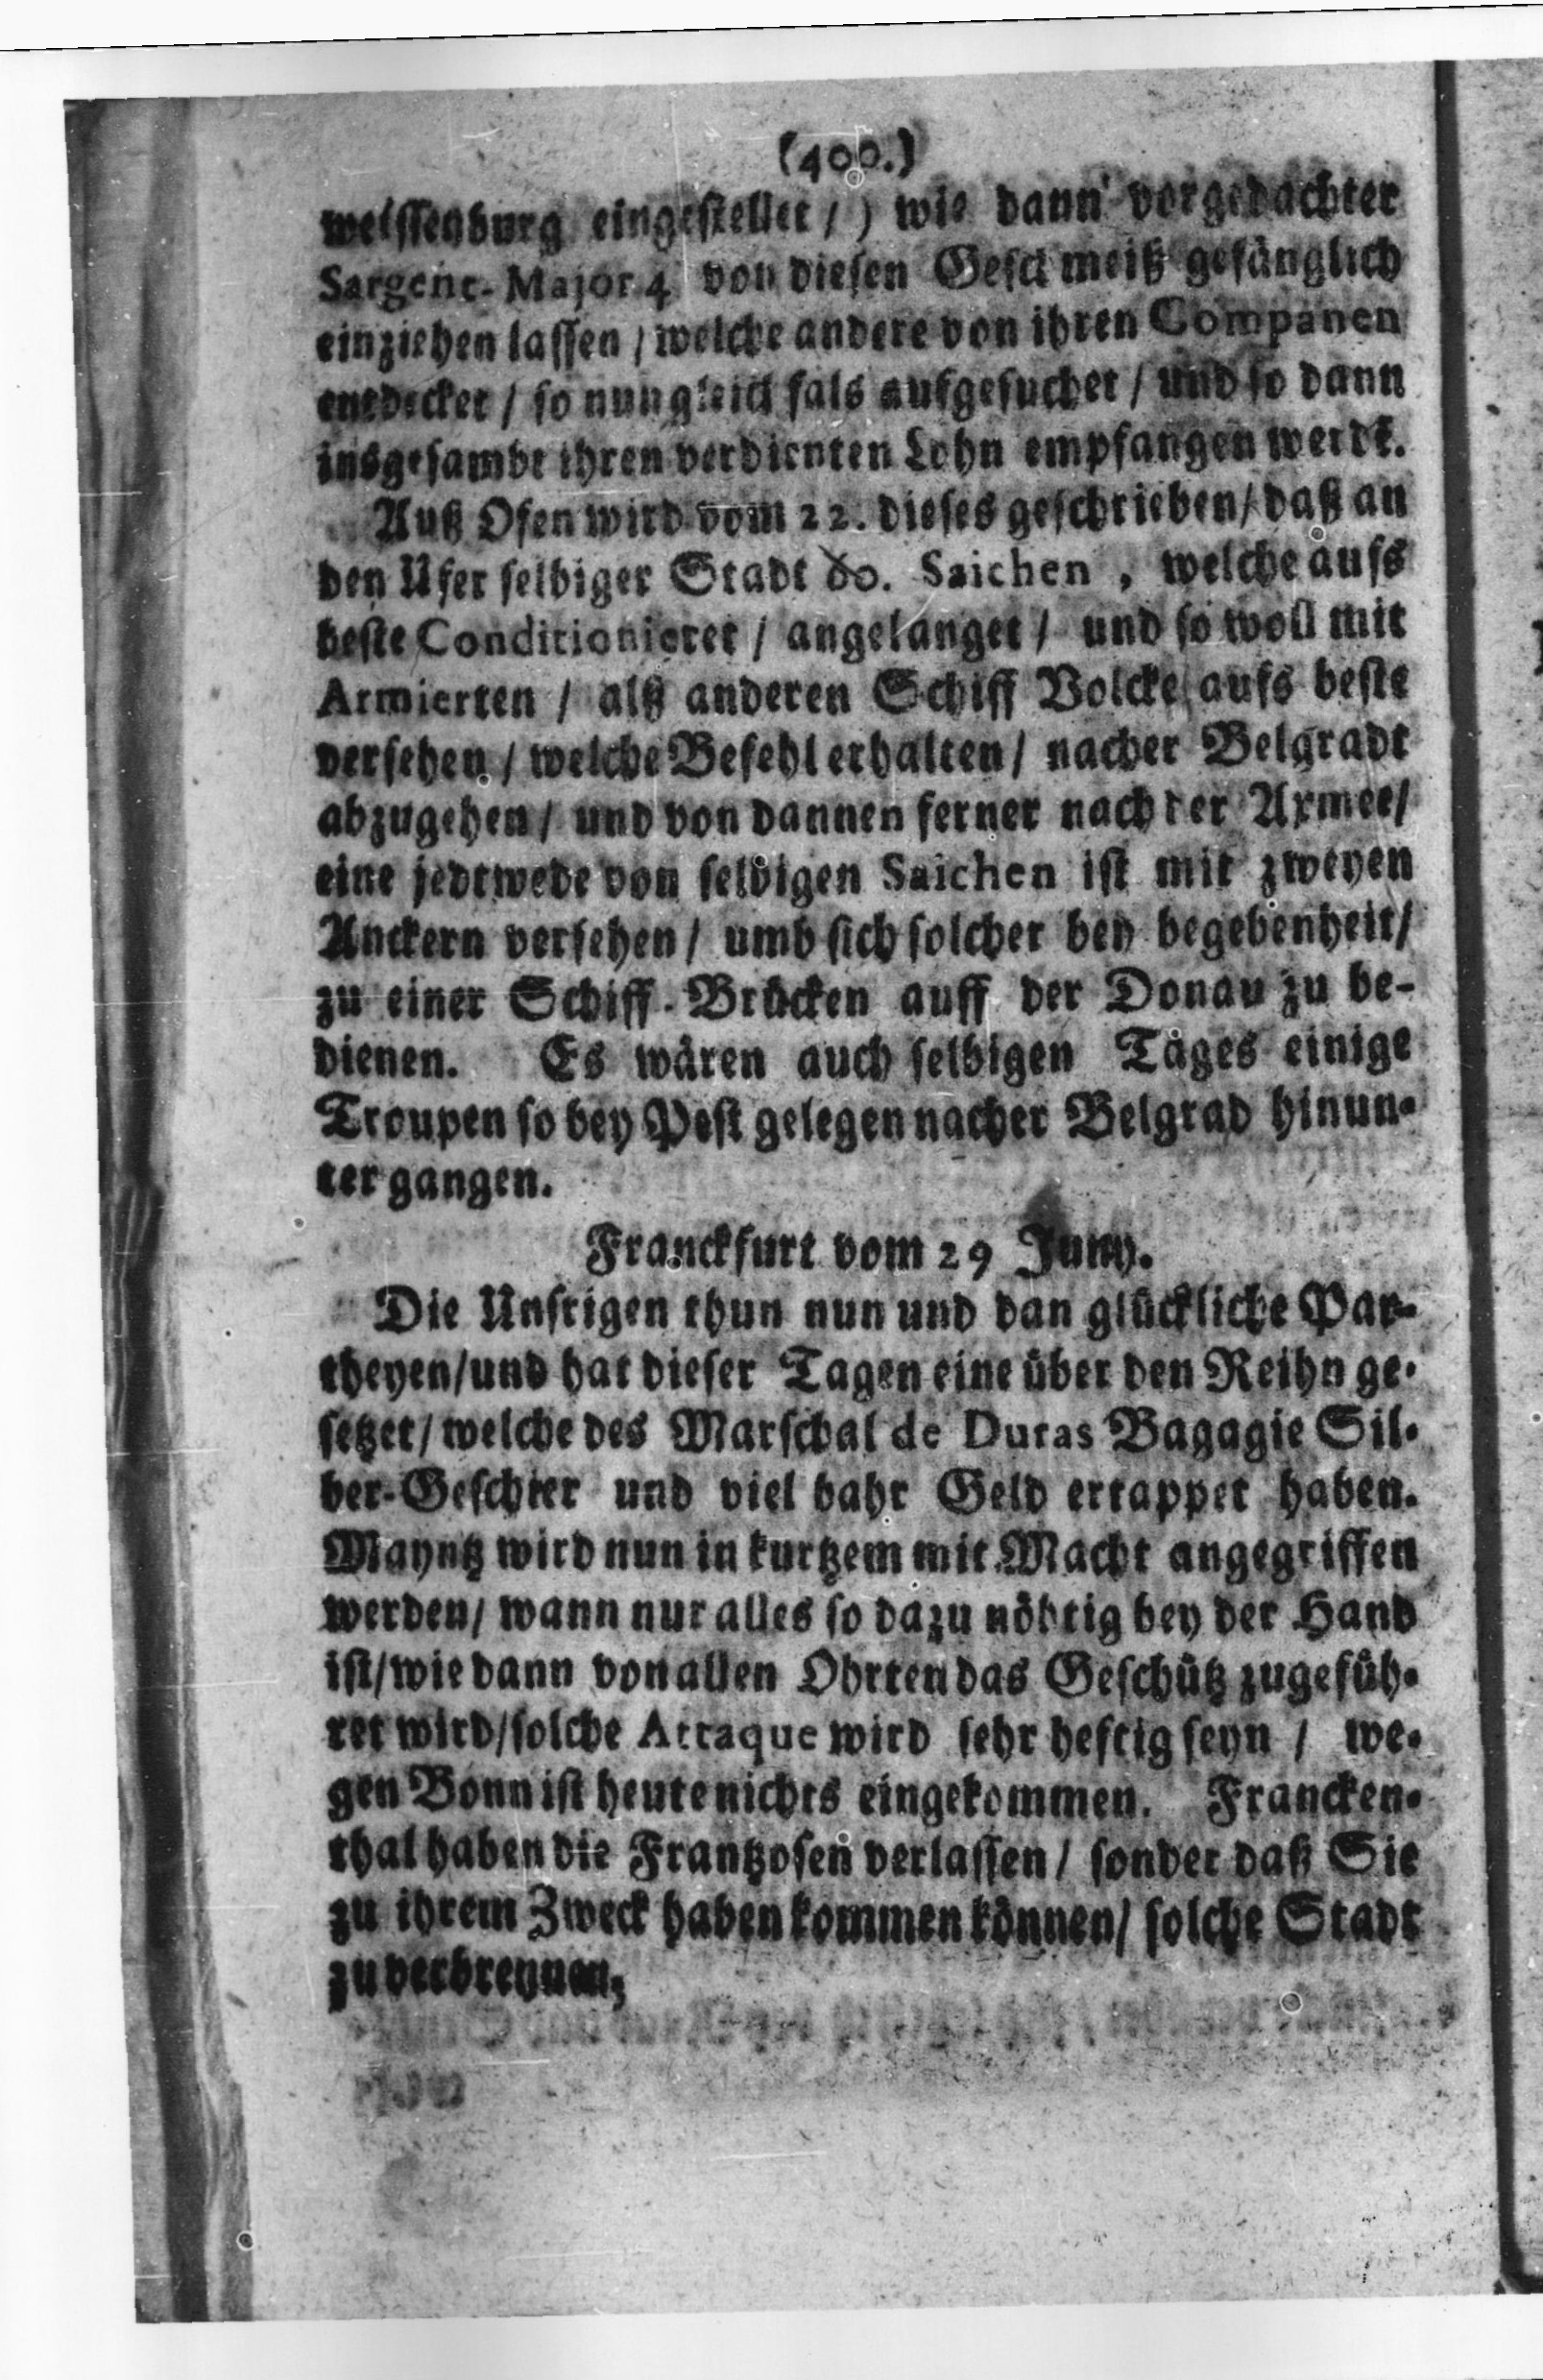 (400.)
weissenburg eingestellet / ) wie dann vorgedachter
Sargent-Major 4 von diesen Geschmeiß gefänglich
einziehen lassen / welche andere von ihren Companen
entdecket / so nun gleich fals aufgesuchet / und so dann
insgesambt ihren verdienten Lohn empfangen werdē.
Auß Ofen wird vom 22. dieses geschrieben / daß an
den Ufer selbiger Stadt 80. Saichen , welche aufs
beste Conditionieret / angelanget / und so woll mit
Armierten / alß anderen Schiff Volcke aufs beste
versehen / welche Befehl erhalten / nacher Belgradt
abzugehen / und von dannen ferner nach der Armee /
eine jedtwede von selbigen Saichen ist mit zweyen
Anckern versehen / umb sich solcher bey begebenheit /
zu einer Schiff-Brücken auff der Donau zu be-
dienen. Es wären auch selbigen Tages einige
Troupen so bey Pest gelegen nacher Belgrad hinun-
ter gangen.
Franckfurt vom 29 Juny.
Die Unsrigen thun nun und dan glückliche Par-
theyen / und hat dieser Tagen eine über den Reihn ge-
setzet / welche des Marschal de Duras Bagagie Sil-
ber-Geschirr und viel bahr Geld ertappet haben.
Mayntz wird nun in kurtzem mit Macht angegriffen
werden / wann nur alles so dazu nöhtig bey der Hand
ist / wie dann von allen Ohrten das Geschütz zugefüh-
ret wird / solche Attaque wird sehr heftig seyn / we-
gen Bonn ist heute nichts eingekommen. Francken-
thal haben die Frantzosen verlassen / sonder daß Sie
zu ihrem Zweck haben kommen können / solche Stadt
zu verbrennen,